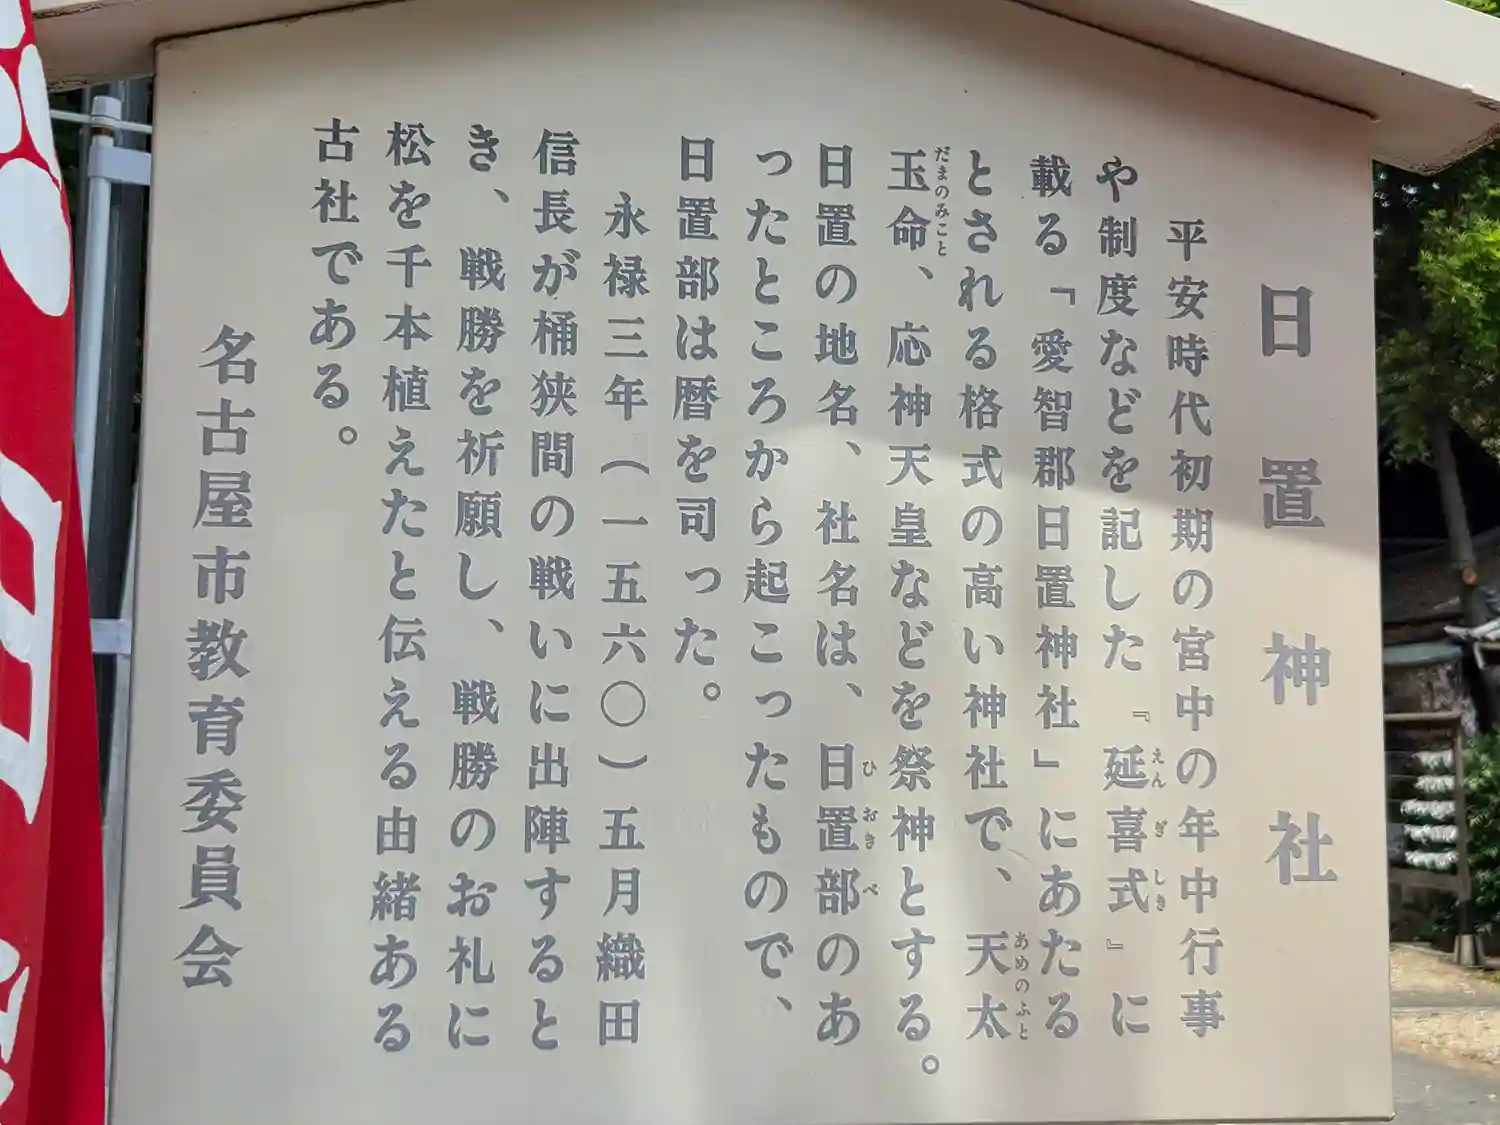 日置神社
平安時代初期の宮中の年中行事
や制度などを記した『延喜式』に
えんぎしき
載る「愛智郡日置神社」にあたる
とされる格式の高い神社で、天太
あめのふと
玉命、応神天皇などを祭神とする。
だまのみこと
日置の地名、社名は、日置部のあ
ひおきべ
ったところから起こったもので、
日置部は暦を司った。
永禄三年(一五六〇)五月織田
信長が桶狭間の戦いに出陣すると
き、戦勝を祈願し、戦勝のお礼に
松を千本植えたと伝える由緒ある
古社である。
名古屋市教育委員会